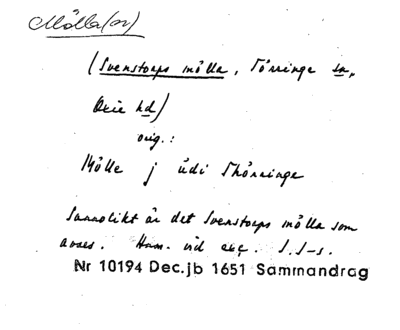 Mölla(or)
(Svenstorps mölla, Törringe sn,
Oxie hd)
orig.:
Mölle j üdi Thörringe
Sannolikt är det Svenstorps mölla som
avses. Hum. vid exc. S.S-s.
Nr 10194 Dec.jb 1651 Sammandrag